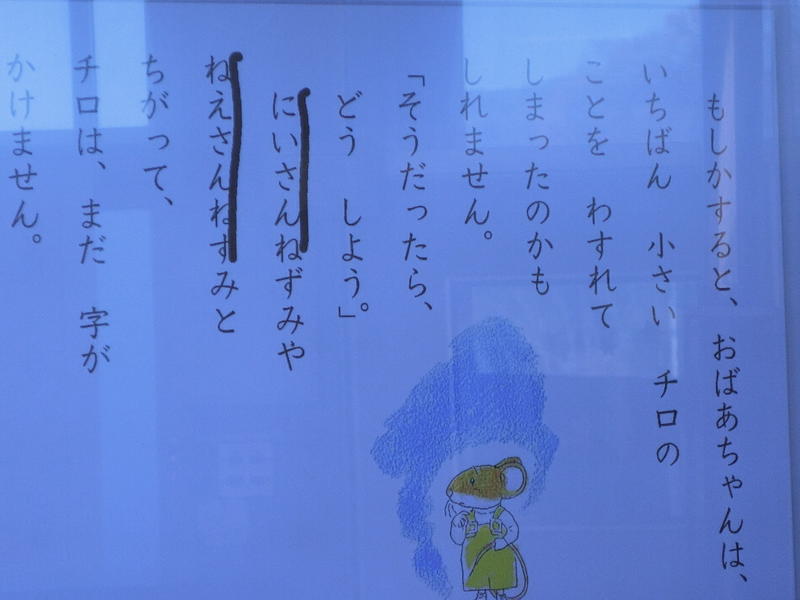 もしかすると、おばあちゃんは、
いちばん　小さい　チロの
ことを　わすれて
しまったのかも
しれません。
「そうだったら、
どう　しよう。」
にいさんねずみや
ねえさんねずみと
ちがって、
チロは、まだ　字が
かけません。